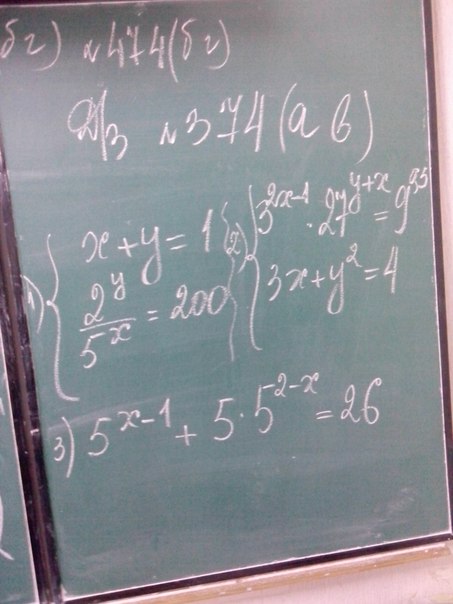 бг) №474(бг)
Д/З №374(а в)
1) { x+y=1
2^y/5^x=200
2) { 3^{2x-1}·27^{y+x}=9^{3,5}
3x+y^2=4
3) 5^{x-1}+5·5^{2-x}=26